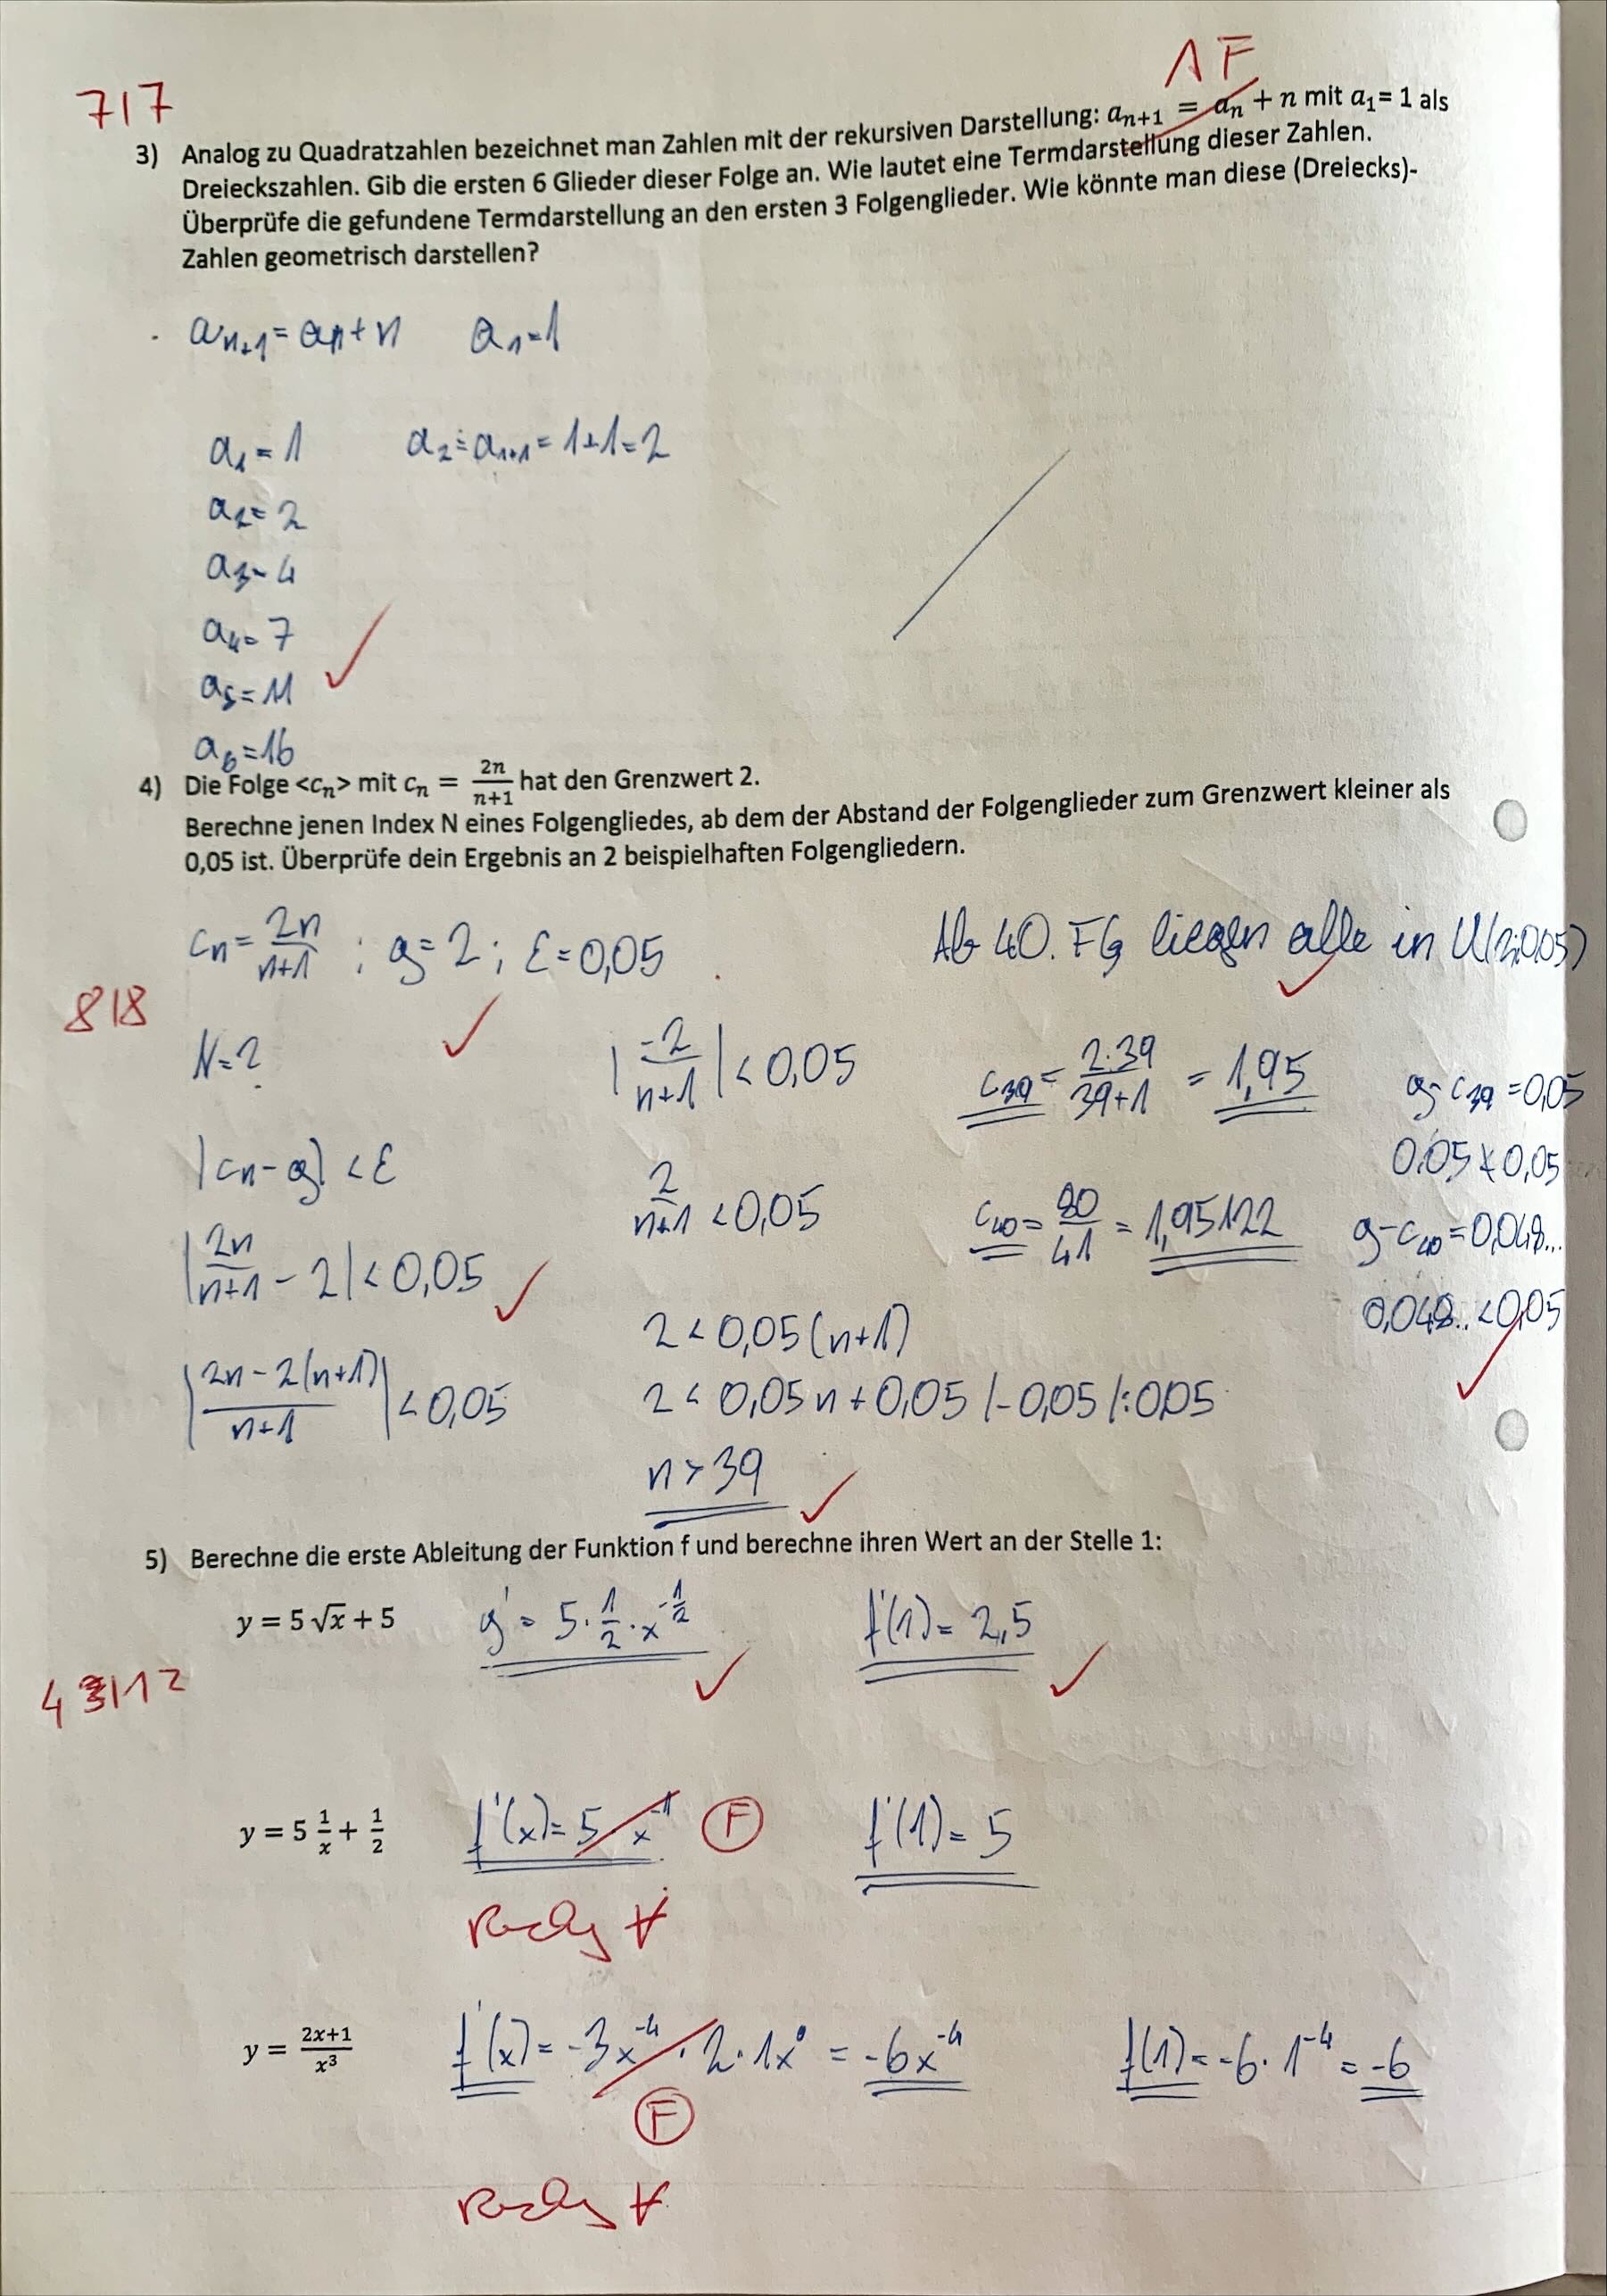 ΛF
7|7
3) Analog zu Quadratzahlen bezeichnet man Zahlen mit der rekursiven Darstellung: aₙ₊₁ = aₙ + n mit a₁= 1 als
Dreieckszahlen. Gib die ersten 6 Glieder dieser Folge an. Wie lautet eine Termdarstellung dieser Zahlen.
Überprüfe die gefundene Termdarstellung an den ersten 3 Folgenglieder. Wie könnte man diese (Dreiecks)-
Zahlen geometrisch darstellen?
aₙ₊₁ = aₙ + n a₁ = 1
a₁ = 1 a₂ = a₁₊₁ = 1+1 = 2
a₂ = 2
a₃ = 4
a₄ = 7
a₅ = 11
a₆ = 16
4) Die Folge <cₙ> mit cₙ = 2n/(n+1) hat den Grenzwert 2.
Berechne jenen Index N eines Folgengliedes, ab dem der Abstand der Folgenglieder zum Grenzwert kleiner als
0,05 ist. Überprüfe dein Ergebnis an 2 beispielhaften Folgengliedern.
cₙ = 2n/(n+1) ; g = 2 ; ε = 0,05
8|8
N = ?
|cₙ - g| < ε
|2n/(n+1) - 2| < 0,05
|(2n - 2(n+1))/(n+1)| < 0,05
|-2/(n+1)| < 0,05
2/(n+1) < 0,05
2 < 0,05 (n+1)
2 < 0,05n + 0,05 /-0,05 /:0,05
n > 39
Ab 40. FG liegen alle in U(2;0,05)
c₃₉ = (2·39)/(39+1) = 1,95
g - c₃₉ = 0,05
0,05 ≮ 0,05
c₄₀ = 80/41 = 1,95122
g - c₄₀ = 0,048...
0,048.. < 0,05
5) Berechne die erste Ableitung der Funktion f und berechne ihren Wert an der Stelle 1:
y = 5 √x + 5 y' = 5 · 1/2 · x^(-1/2) f'(1) = 2,5
4|12
y = 5 1/x + 1/2 f'(x) = 5 x⁻¹ F f'(1) = 5
y = (2x+1)/x³ f'(x) = -3x⁻⁴ · 2 · 1x⁰ = -6x⁻⁴ f(1) = -6 · 1⁻⁴ = -6
F